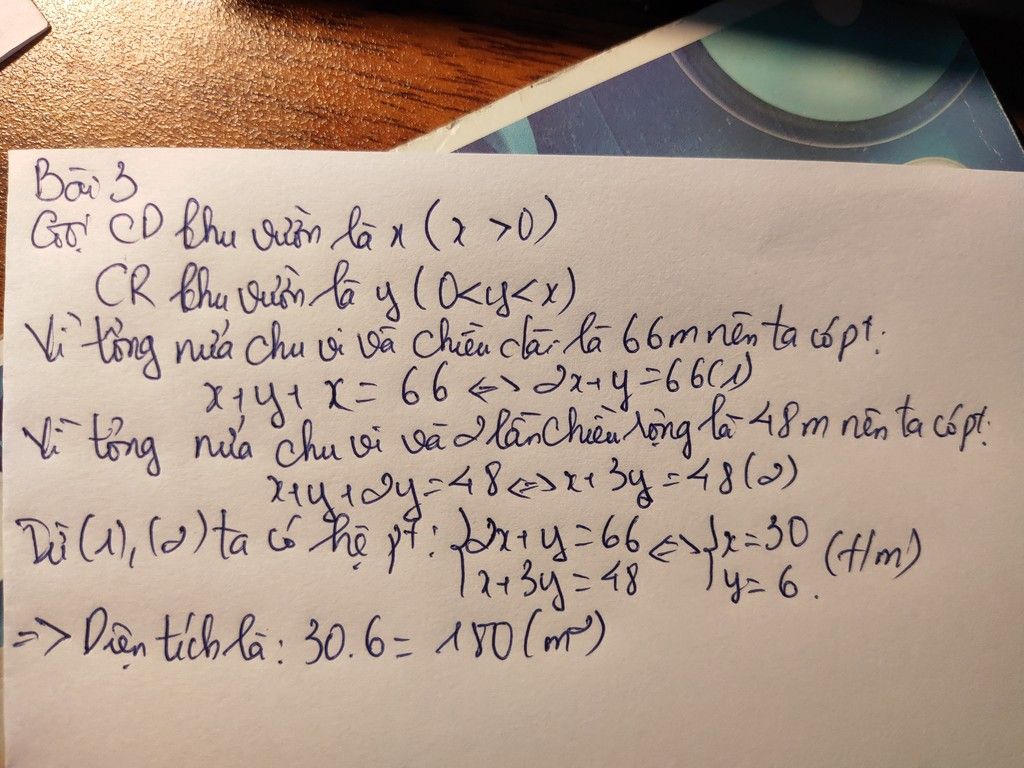 Bài 3
Gọi CD khu vườn là x ( x > 0 )
CR khu vườn là y ( 0 < y < x )
Vì tổng nửa chu vi và chiều dài là 66m nên ta có pt:
x + y + x = 66 <=> 2x + y = 66 (1)
Vì tổng nửa chu vi và 2 lần chiều rộng là 48m nên ta có pt:
x + y + 2y = 48 <=> x + 3y = 48 (2)
Từ (1), (2) ta có hệ pt: { 2x + y = 66 <=> { x = 30 (t/m)
x + 3y = 48 y = 6.
=> Diện tích là: 30.6 = 180 (m²)